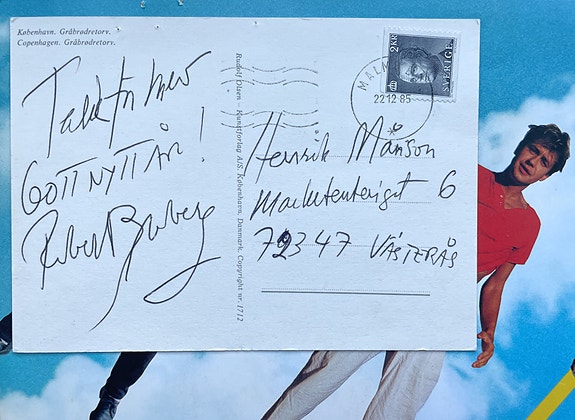 København. Gråbrødretorv.
Copenhagen. Gråbrødretorv.
Tack för brev
GOTT NYTT ÅR!
Robert Broberg
Rudolf Olsen – Kunstforlag A/S. København. Danmark. Copyright nr. 1712
MAL
22 12 85
2 KR
SVERIGE
Henrik Månson
Marketenterigat 6
72347 VÄSTERÅS